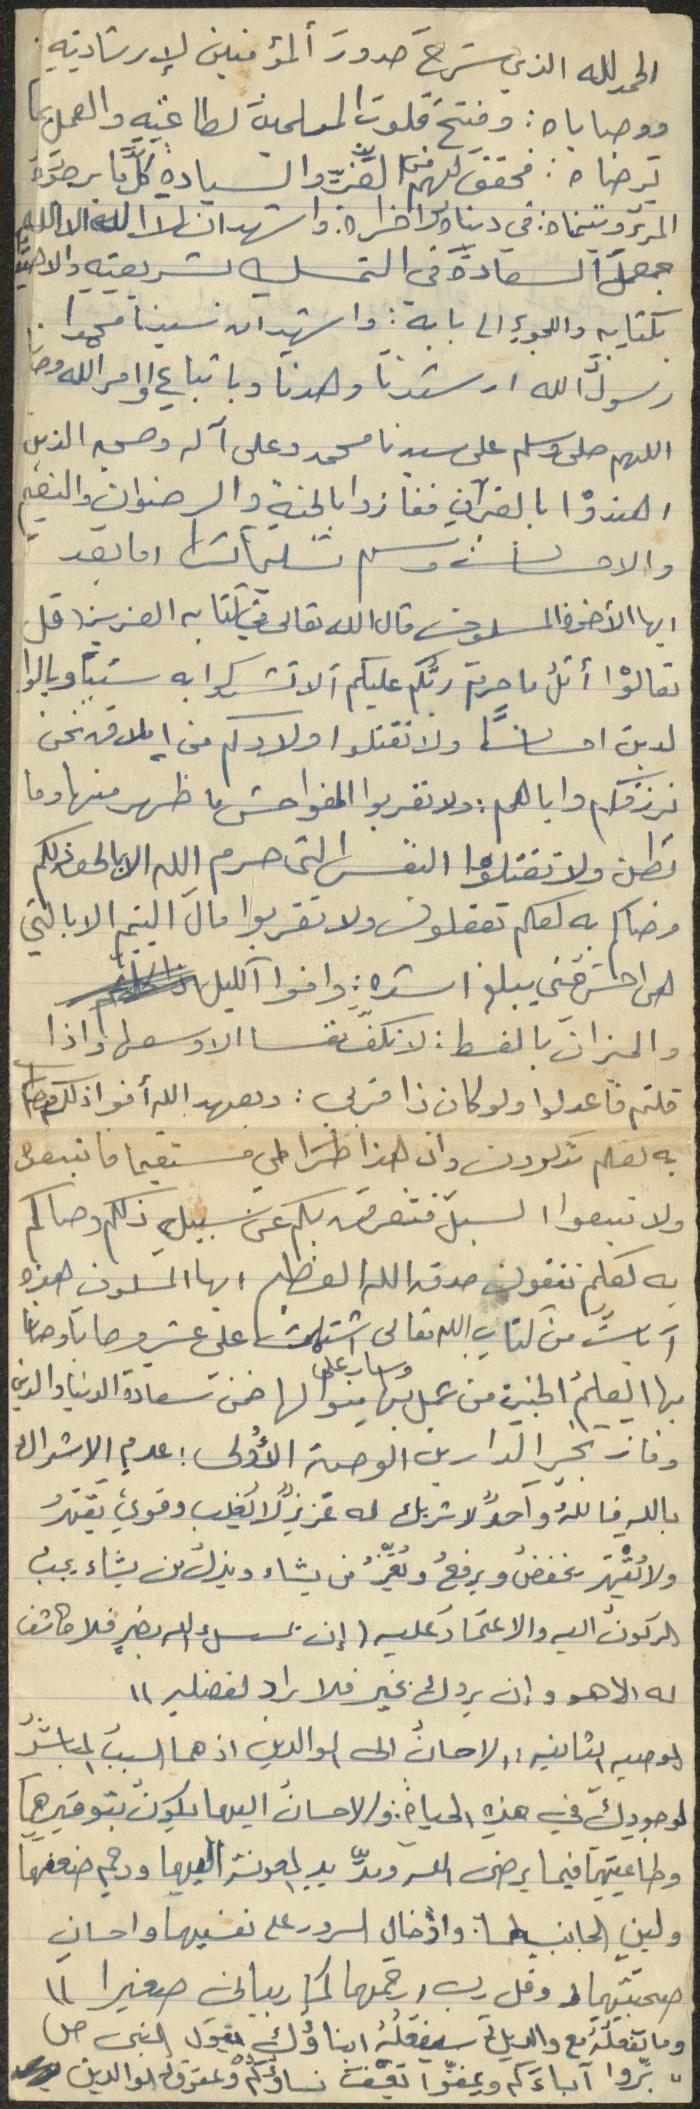 الحمد لله الذي شرح صدور المؤمنين لإرشاداته
ووصاياه: وفتح قلوب المسلمين لطاعته والعمل بما
يرضاه: فحقق لهم من العزة والسيادة كل ما يرجوه
المرء ويتمناه: في دنياه وأخراه. واشهد ان لا اله الا الله
جعل السعادة في التمسك بشريعته والاهتداء
بكتابه واللجوء الى بابه: واشهد ان سيدنا محمدا
رسول الله ارشدنا وهدنا وباتباع اوامر الله وصانا
اللهم صلى وسلم على سيدنا محمد وعلى آله وصحبه الذين
اهتدوا بالقرآن ففازوا بالجنة والرضوان والنعيم
والاحسان وسلم تسليما كثيرا اما بعد
ايها الأخوة المسلمون قال الله تعالى في كتابه العزيز (قل
تعالوا أتل ما حرم ربكم عليكم ألا تشركوا به شيئا وبالوا
لدين احسانا ولا تقتلوا اولادكم من إملاق نحن
نرزقكم واياهم: ولا تقربوا الفواحش ما ظهر منها وما
بطن ولا تقتلوا النفس التى حرم الله الا بالحق ذلكم
وصاكم به لعلكم تعقلون ولا تقربوا مال اليتيم الا بالتي
هى احسن حتى يبلغ اشده: وافوا الكيل
والميزان بالقسط: لا نكلف نفسا الا وسعها واذا
قلتم فاعدلوا ولو كان ذا قربى: وبعهد الله أفوا ذلكم وصاكم
به لعلكم تذكرون وان هذا صراطي مستقيما فاتبعوه
ولا تتبعوا السبل فتفرق بكم عن سبيله ذلكم وصاكم
به لعلكم تتقون صدق الله العظيم ايها المسلمون هذه
آيات من كتاب الله تعالى اشتملت على عشر وصايا وصانا
بها العليم الخبير من عمل بها وسار على منوالها ضمن سعادة الدنيا والدين
وفاز بخير الدارين الوصية الأولى: عدم الاشراك
بالله فالله واحد لا شريك له عزيز لا يغلب وقوي يقهر
ولا يقهر يخفض ويرفع ويعز من يشاء ويذل من يشاء يجب
الركون اليه والاعتماد عليه (إن يمسسك الله بضر فلا كاشف
له الا هو وإن يردك بخير فلا راد لفضله))
الوصيه الثانيه: الاحسان الى الوالدين اذ هما السبب المباشر
لوجودك في هذه الحياة: والاحسان اليهما يكون بتوقيرهما
وطاعتهما فيما يرضى الله ومد يد المعونة اليهما ورحم ضعفهما
ولين الجانب لهما: وادخال السرور على نفسيهما واحسان
صحبتهما وقل رب ارحمهما كما ربياني صغيرا))
وما تفعله مع والديك سيفعله ابناؤك يقول النبى صل
بروا آباءكم وعفوا تعف نساؤكم وعقوق الوالدين